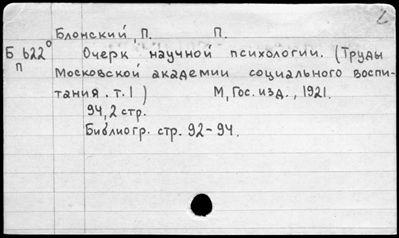 2
Блонский, П. П.
Б 622° Очерк научной психологии. (Труды
п Московской академии социального воспи-
тания. т. I) М, Гос. изд., 1921.
94, 2 стр.
Библиогр. стр. 92-94.